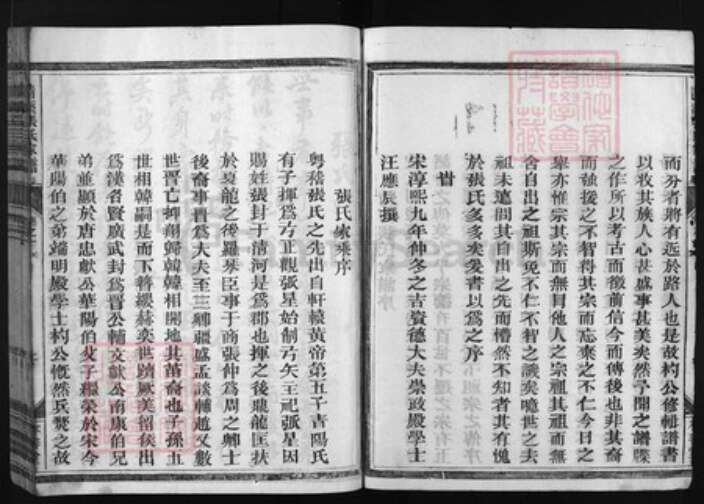 而分者將有近於路人也是故杓公修輯譜書
以收其族人心甚盛事甚美矣然予聞之譜牒
之作所以考古而徵前信今而傳後也非其裔
而強援之不智得其宗而忘棄之不仁今日之
舉亦惟宗其宗而無冒他人之宗祖其祖而無
舍自出之祖斯免不仁不智之譏矣噫世之夫
祖未遠間其自出之先而懵然不知者其有愧
於張氏多多矣爰書以為之序
旹
宋淳熙九年仲冬之吉資德大夫崇政殿學士
汪應辰撰
張氏家乘序
粵稽張氏之先出自軒轅黃帝第五子青陽氏
有子揮為弓正觀張星始制弓矢主祀張星因
賜姓張封于清河是為郡也揮之後鼎龍匡扶
於夏龍之後羅琴臣事于商張仲為周之卿士
後裔事晉為大夫至三卿疆盛孟談輔趙父數
世晉亡抑朔歸韓韓相開地其苗裔也子孫五
世相韓嗣是而下簪纓赫奕世躋厥美留侯出
為漢名賢廣武封為晉公輔文獻公南康伯兄
弟並顯於唐忠獻公華陽伯父子繼榮於宋今
華陽伯之弟端明殿學士杓公慨然兵燹之故